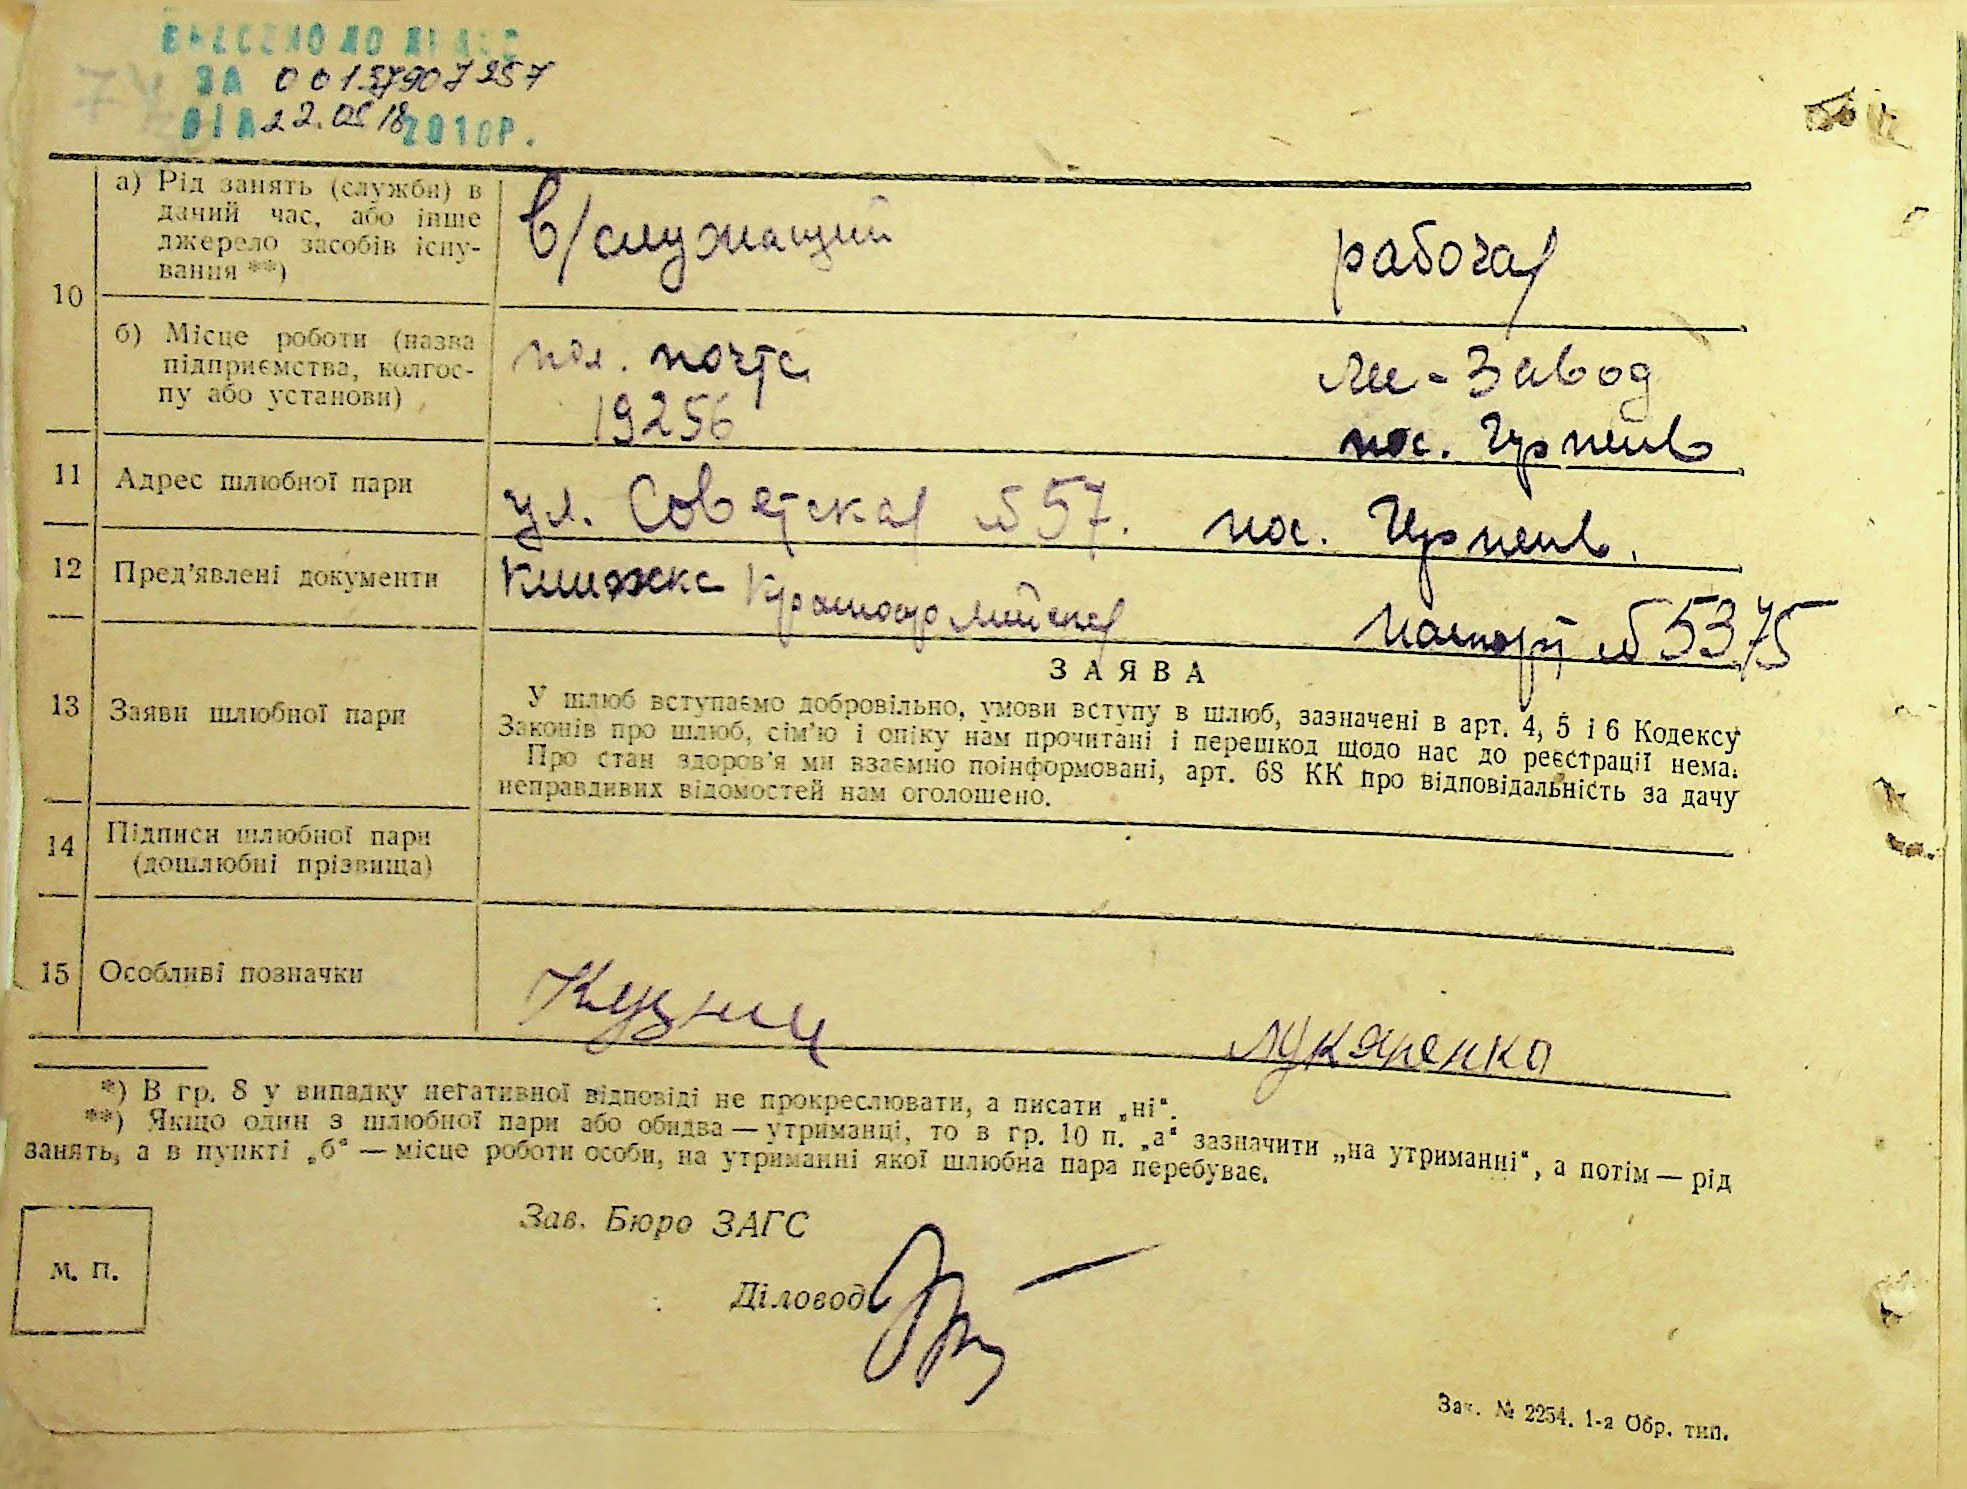 ВНЕСЕНО ДО ДРАЦС
ЗА 00137907257
ВІД 22.05.18 2010Р.
10
а) Рід занять (служби) в
даний час, або інше
джерело засобів існу-
вання **)
в/служащий рабочая
б) Місце роботи (назва
підприємства, колгос-
пу або установи)
пол. почта
19256
завод
пос. Ирпень
11 Адрес шлюбної пари
ул. Советская № 57. пос. Ирпень.
12 Пред'явлені документи
Книжка Красноармейская паспорт № 5375
13 Заяви шлюбної пари
ЗАЯВА
У шлюб вступаємо добровільно, умови вступу в шлюб, зазначені в арт. 4, 5 і 6 Кодексу
Законів про шлюб, сім'ю і опіку нам прочитані і перешкод щодо нас до реєстрації нема.
Про стан здоров'я ми взаємно поінформовані, арт. 68 КК про відповідальність за дачу
неправдивих відомостей нам оголошено.
14 Підписи шлюбної пари
(дошлюбні прізвища)
15 Особливі позначки
Кузнец Лукяненко
*) В гр. 8 у випадку негативної відповіді не прокреслювати, а писати „ні“.
**) Якщо один з шлюбної пари або обидва — утриманці, то в гр. 10 п. „а“ зазначити „на утриманні“, а потім — рід
занять, а в пункті „б“ — місце роботи особи, на утриманні якої шлюбна пара перебуває.
Зав. Бюро ЗАГС
м. п.
Діловод
Зак. № 2254. 1-а Обр. тип.